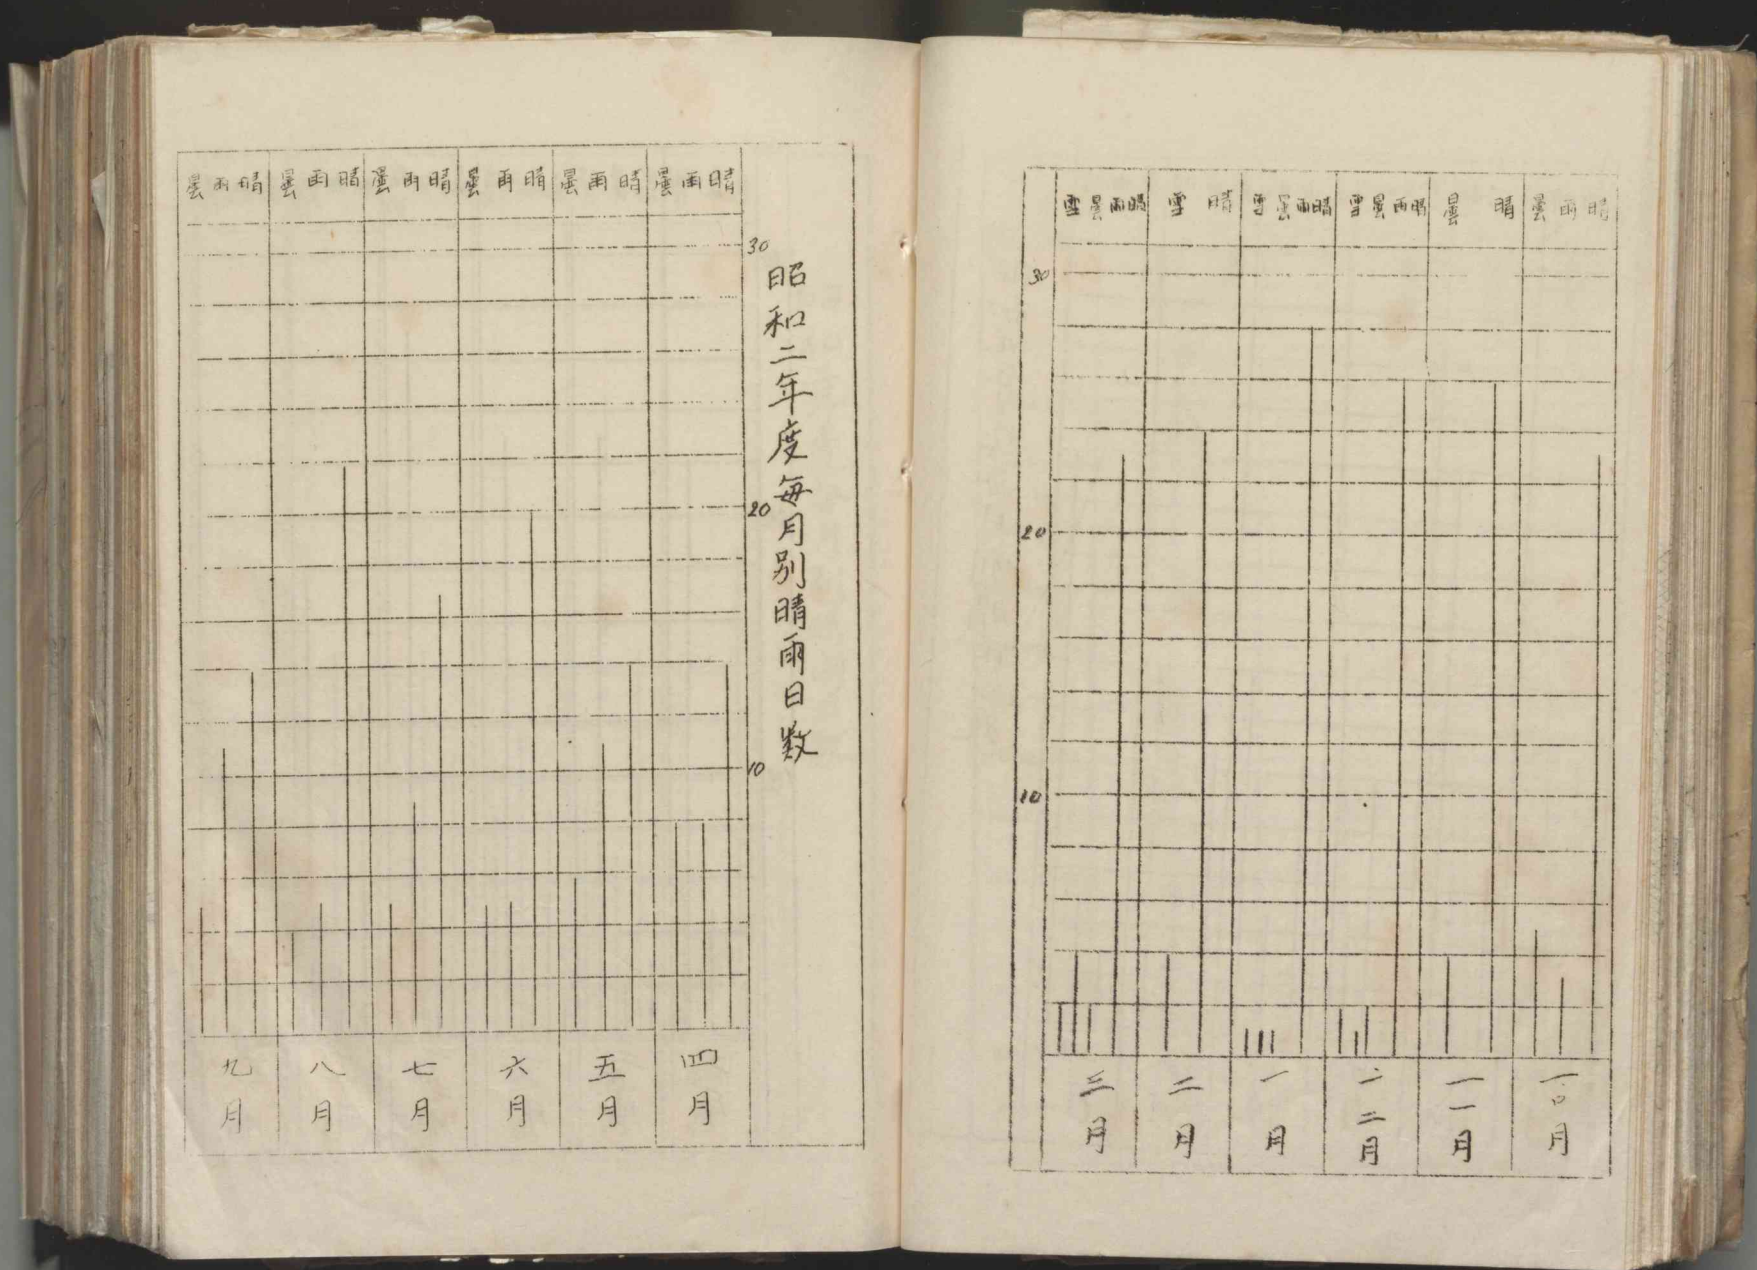 昭和二年度毎月別晴雨日数
30
20
10
晴雨曇
晴雨曇
晴雨曇
晴雨曇
晴雨曇
晴雨曇
四月
五月
六月
七月
八月
九月
30
20
10
晴雨曇
晴曇
晴雨曇雪
晴雨曇雪
晴雪
晴雨曇雪
一〇月
一一月
一二月
一月
二月
三月